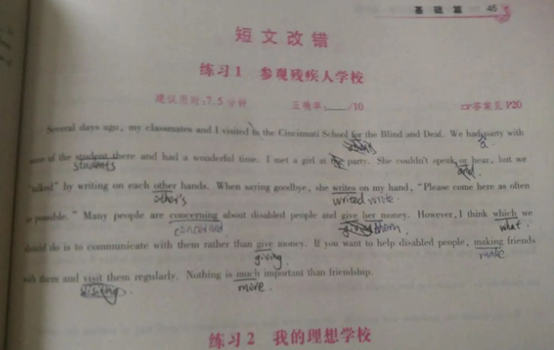 基础篇 45
短文改错
练习1 参观残疾人学校
建议用时:7.5分钟 正确率:____/10 答案见P20
Several days ago, my classmates and I visited in the Cincinnati School for the Blind and Deaf. We had party with
a
some of the student there and had a wonderful time. I met a girl at the party. She couldn't speak or hear, but we
students and
"talked" by writing on each other hands. When saying goodbye, she writes on my hand, "Please come here as often
other's write
as possible." Many people are concerning about disabled people and give her money. However, I think which we
concerned them what
should do is to communicate with them rather than give money. If you want to help disabled people, making friends
giving make
with them and visit them regularly. Nothing is much important than friendship.
more
练习2 我的理想学校